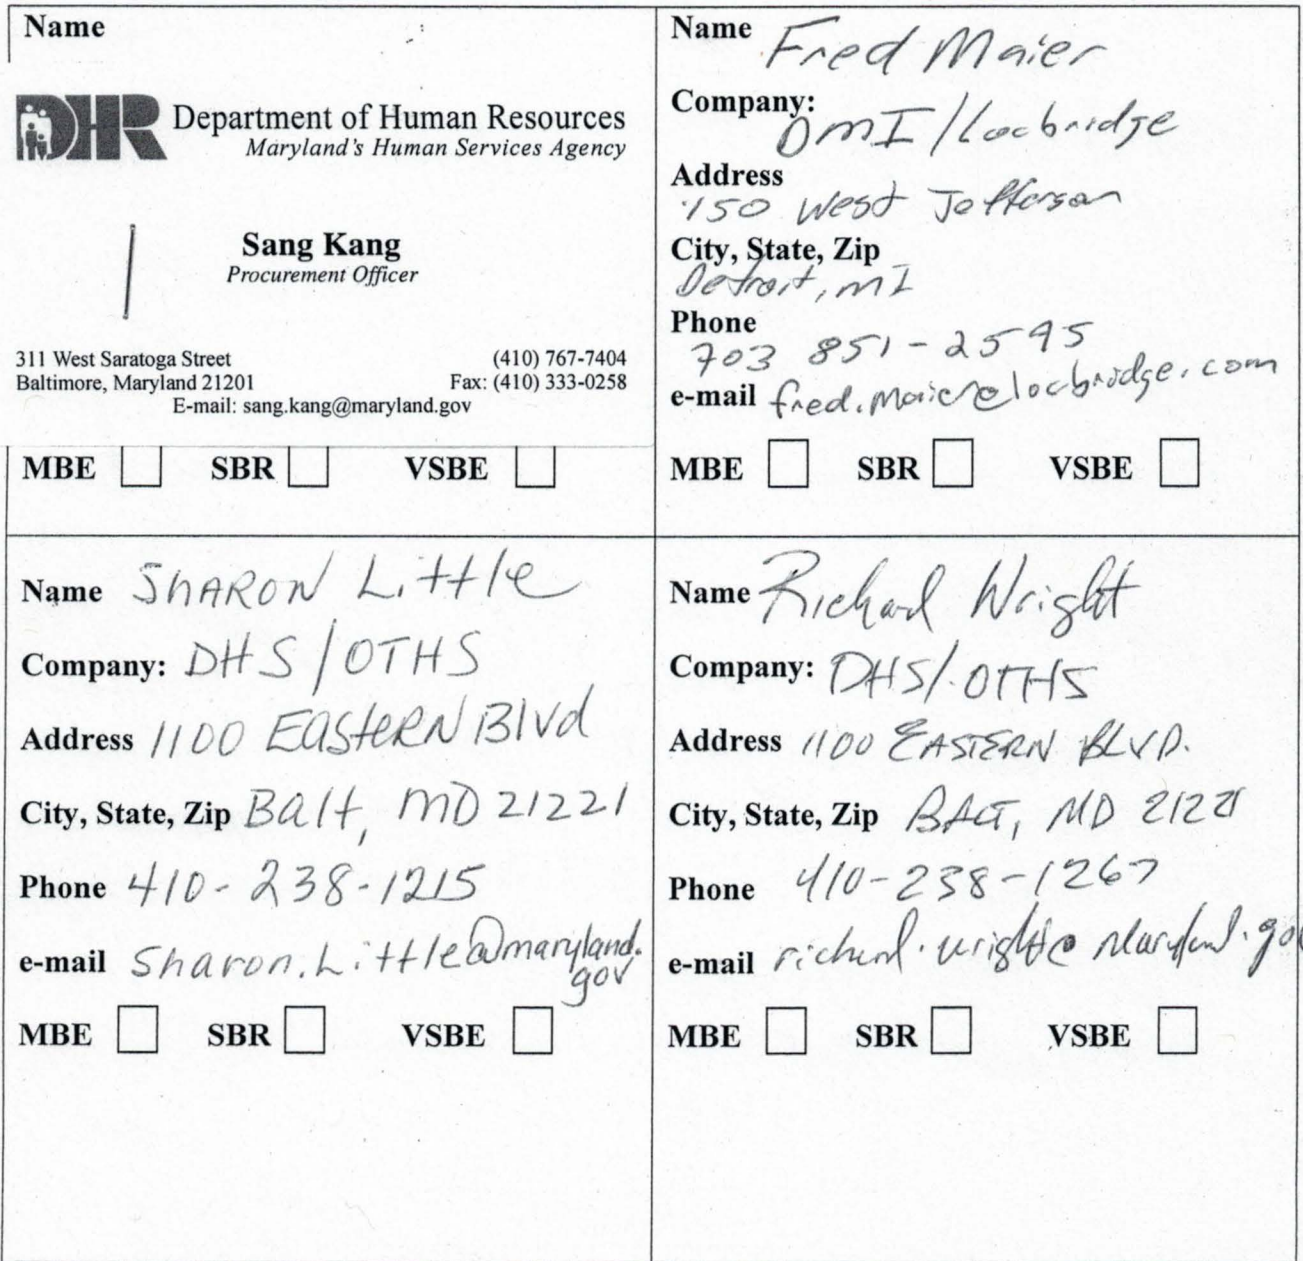 Name
DHR Department of Human Resources
Maryland's Human Services Agency
Sang Kang
Procurement Officer
311 West Saratoga Street (410) 767-7404
Baltimore, Maryland 21201 Fax: (410) 333-0258
E-mail: sang.kang@maryland.gov
MBE SBR VSBE
Name Fred Maier
Company:
DMI/Locbridge
Address
150 West Jefferson
City, State, Zip
Detroit, MI
Phone
703 851-2595
e-mail fred.maier@locbridge.com
MBE SBR VSBE
Name SHARON Little
Company: DHS/OTHS
Address 1100 EASTERN Blvd
City, State, Zip Balt, MD 21221
Phone 410-238-1215
e-mail Sharon.Little@maryland.
gov
MBE SBR VSBE
Name Richard Wright
Company: DHS/OTHS
Address 1100 EASTERN BLVD.
City, State, Zip BALT, MD 21221
Phone 410-238-1267
e-mail richard.wright@maryland.gov
MBE SBR VSBE